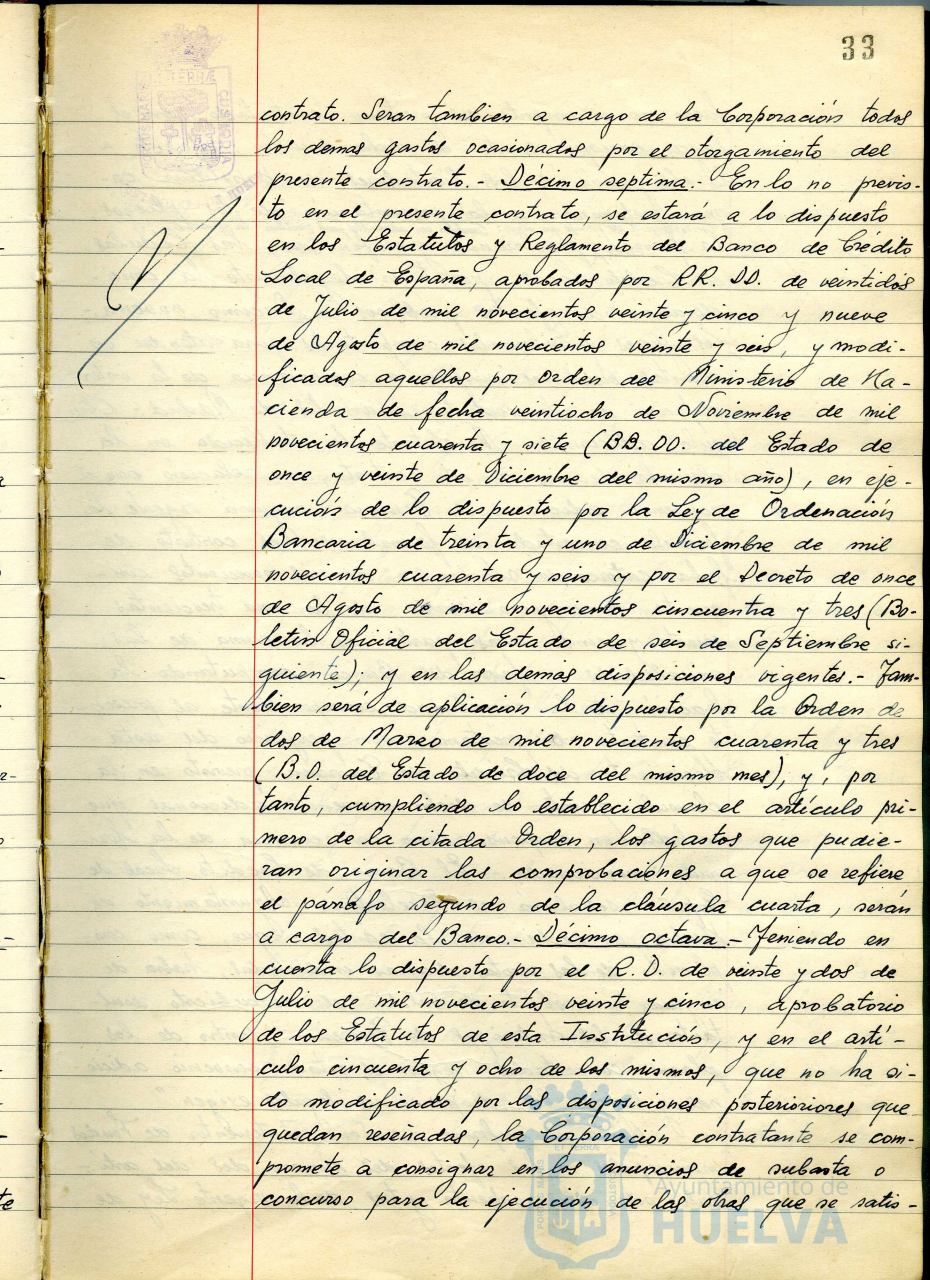 33
contrato. Seran tambien a cargo de la Corporación todos
los demas gastos ocasionados por el otorgamiento del
presente contrato.- Décimo septima.- En lo no previs-
to en el presente contrato, se estará a lo dispuesto
en los Estatutos y Reglamento del Banco de Crédito
Local de España, aprobados por RR. DD. de veintidós
de Julio de mil novecientos veinte y cinco y nueve
de Agosto de mil novecientos veinte y seis, y modi-
ficados aquellos por Orden del Ministerio de Ha-
cienda de fecha veintiocho de Noviembre de mil
novecientos cuarenta y siete (BB.OO. del Estado de
once y veinte de Diciembre del mismo año), en eje-
cución de lo dispuesto por la Ley de Ordenación
Bancaria de treinta y uno de Diciembre de mil
novecientos cuarenta y seis y por el Decreto de once
de Agosto de mil novecientos cincuenta y tres (Bo-
letin Oficial del Estado de seis de Septiembre si-
guiente); y en las demás disposiciones vigentes.- Tam-
bien será de aplicación lo dispuesto por la Orden de
dos de Marzo de mil novecientos cuarenta y tres
(B.O. del Estado de doce del mismo mes), y, por
tanto, cumpliendo lo establecido en el artículo pri-
mero de la citada Orden, los gastos que pudie-
ran originar las comprobaciones a que se refiere
el párrafo segundo de la cláusula cuarta, serán
a cargo del Banco.- Décimo octava.- Teniendo en
cuenta lo dispuesto por el R. D. de veinte y dos de
Julio de mil novecientos veinte y cinco, aprobatorio
de los Estatutos de esta Institución, y en el artí-
culo cincuenta y ocho de los mismos, que no ha si-
do modificado por las disposiciones posterioriores que
quedan reseñadas, la Corporación contratante se com-
promete a consignar en los anuncios de subasta o
concurso para la ejecución de las obras que se satis-
Ayuntamiento de
HUELVA